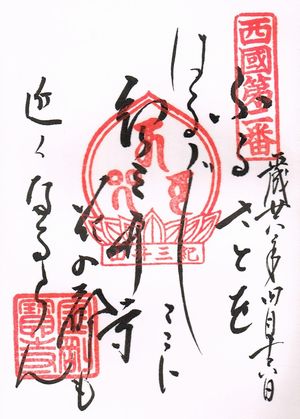 西國第二番
ふるさとを
はる〴〵ここに
紀三井寺
花の都も
近くなるらん
紀三井寺
金剛
寶寺
廿八年四月